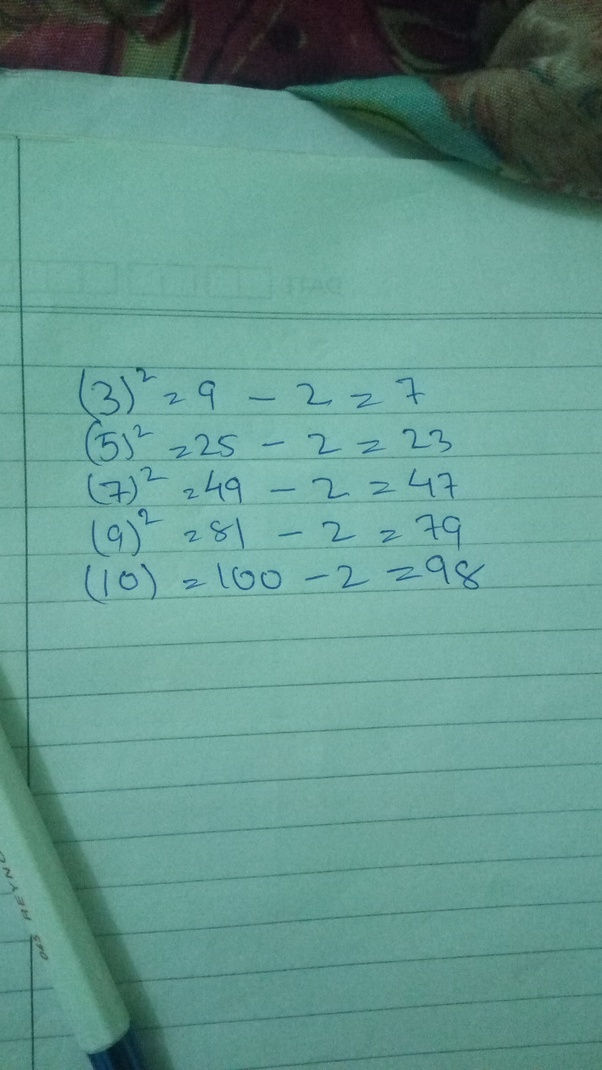 (3)² = 9 - 2 = 7
(5)² = 25 - 2 = 23
(7)² = 49 - 2 = 47
(9)² = 81 - 2 = 79
(10) = 100 - 2 = 98